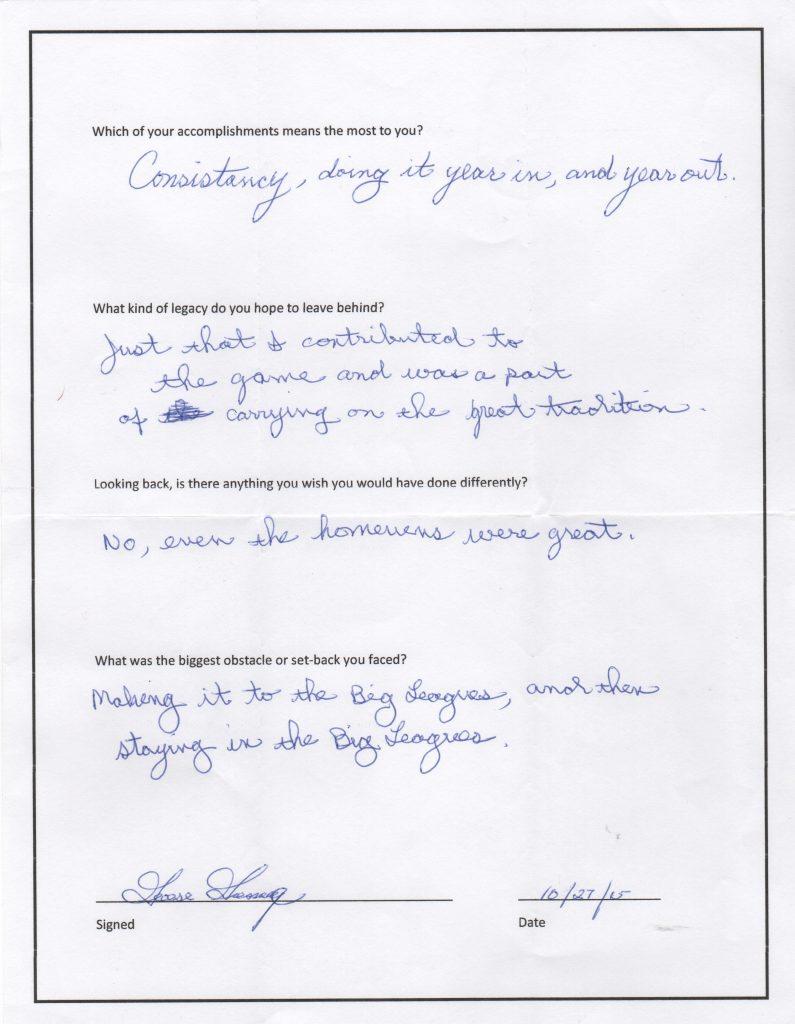 Which of your accomplishments means the most to you?
Consistancy, doing it year in, and year out.
What kind of legacy do you hope to leave behind?
Just that I contributed to
the game and was a part
of carrying on the great tradition.
Looking back, is there anything you wish you would have done differently?
No, even the homeruns were great.
What was the biggest obstacle or set-back you faced?
Making it to the Big Leagues, and then
staying in the Big Leagues.
10/27/15
Signed Date